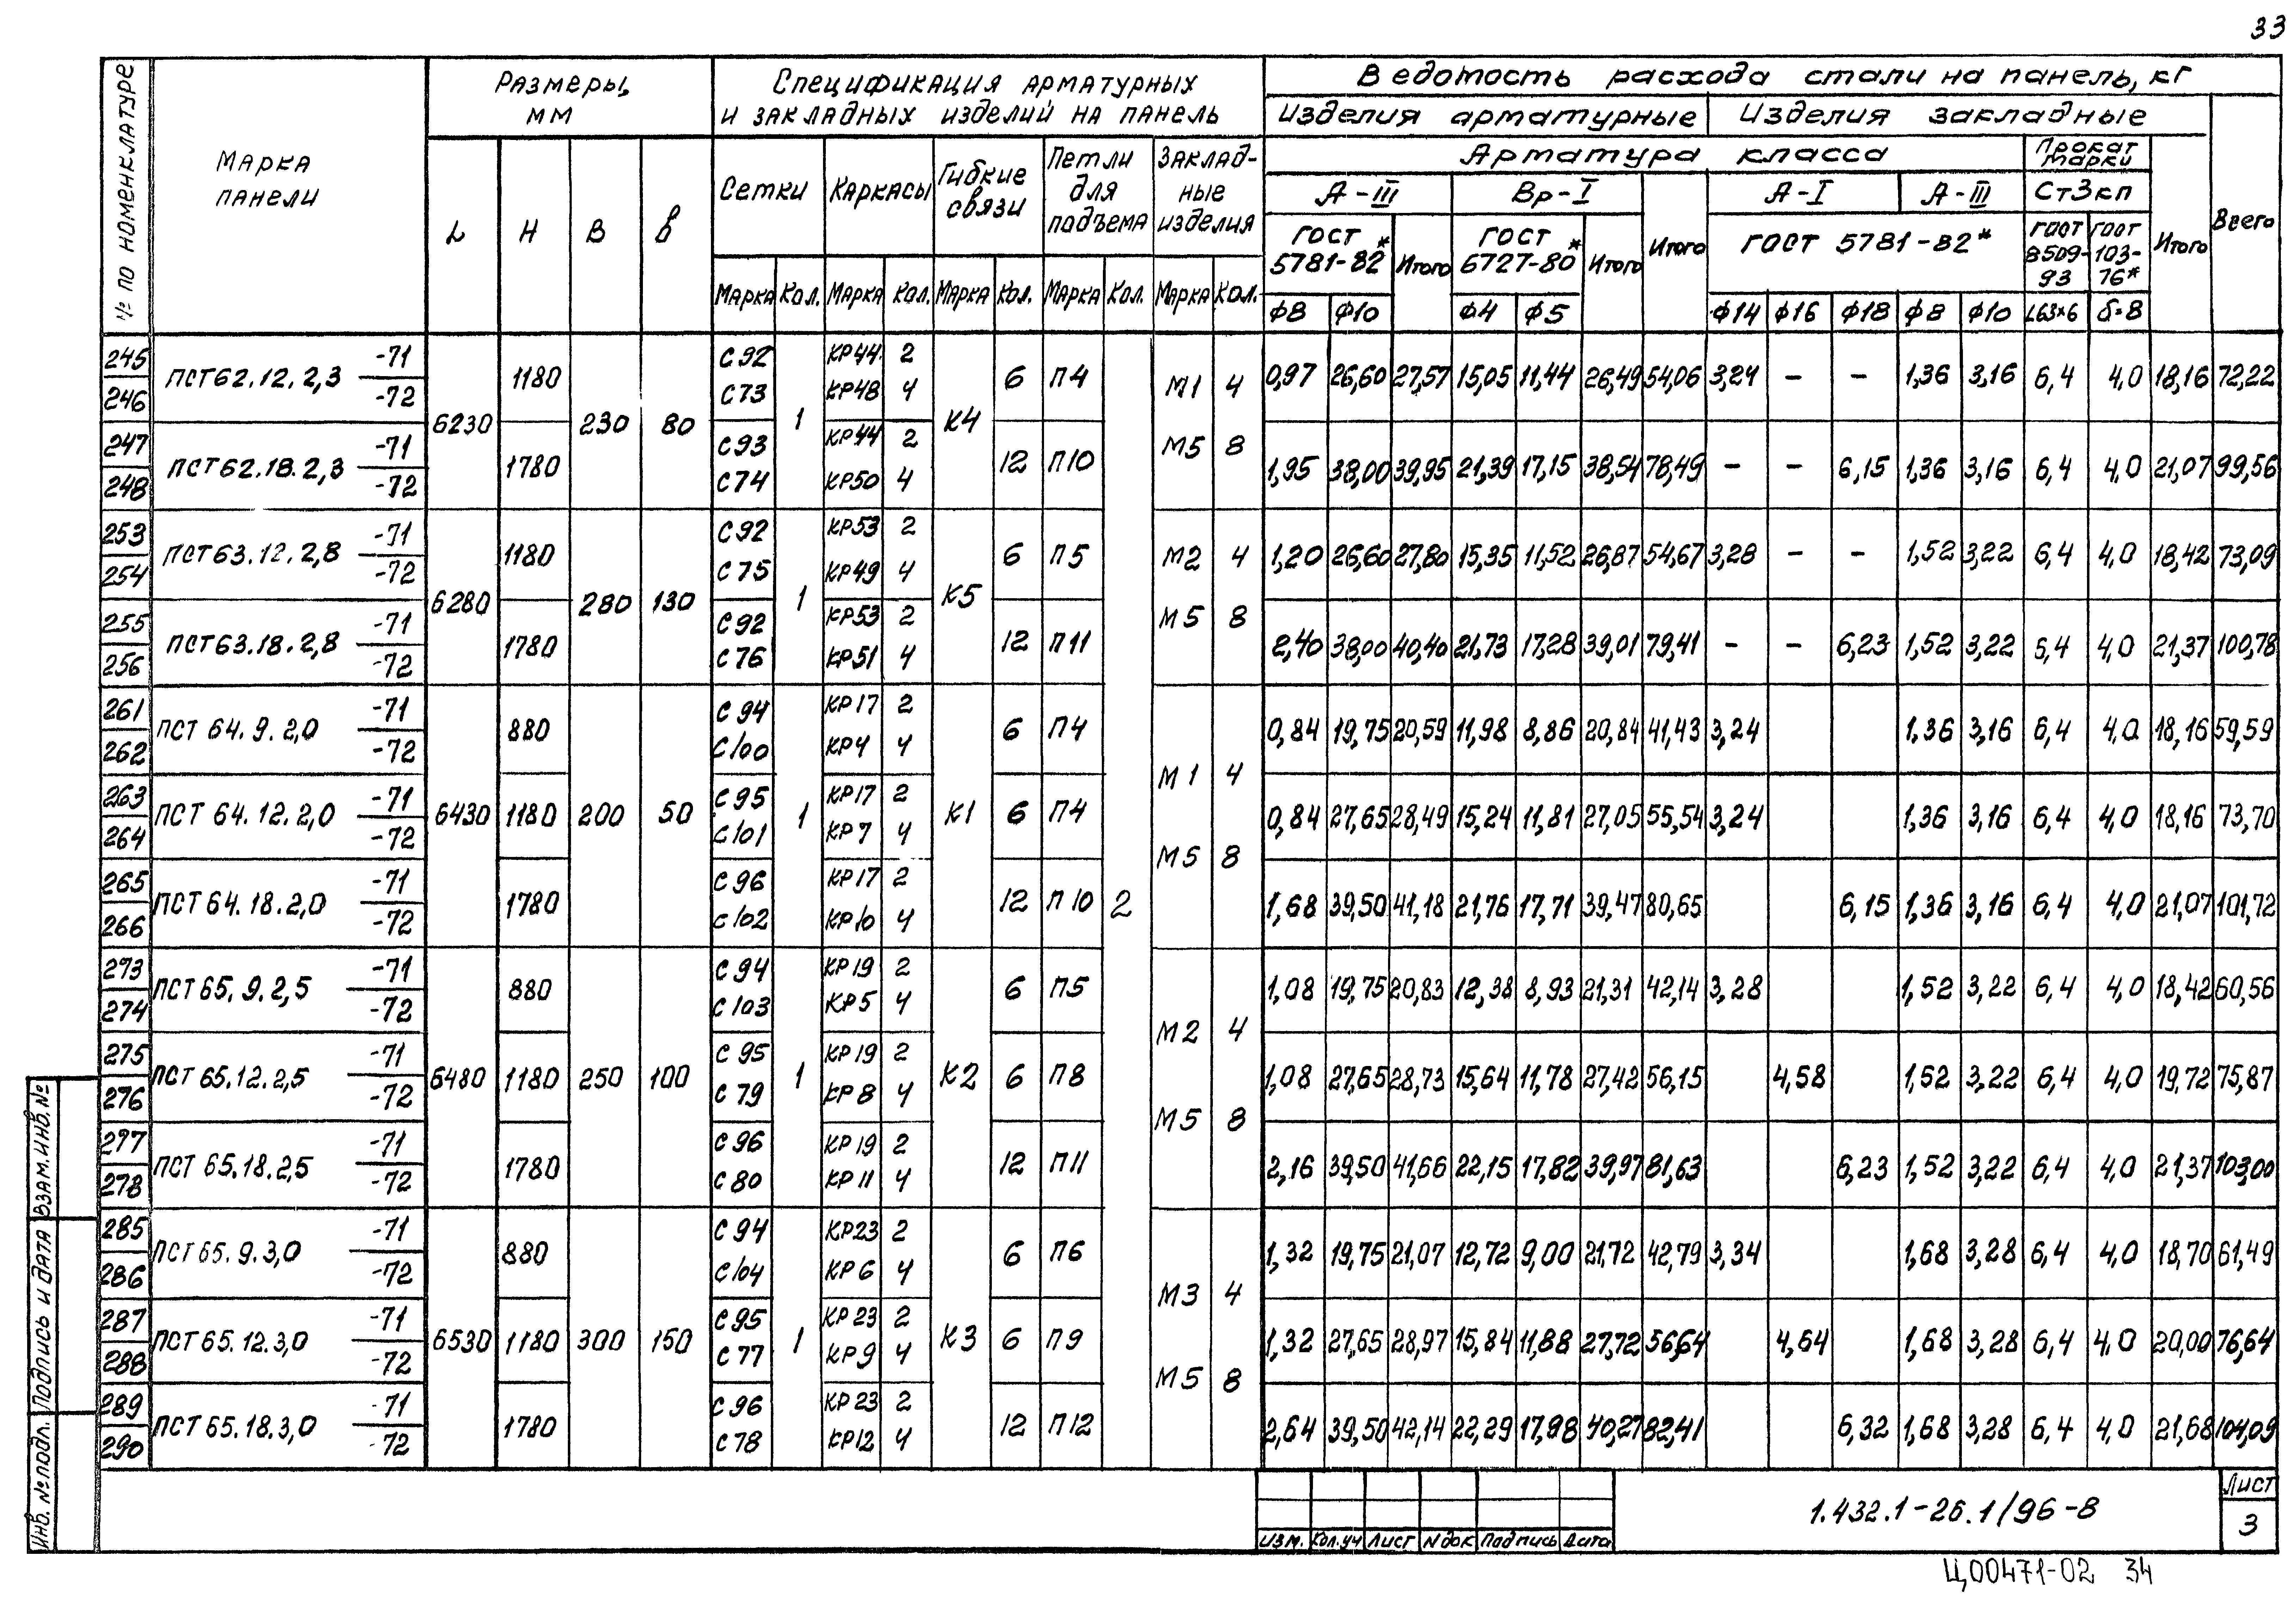 33
№ по номенклатуре
Марка панели
Размеры, мм
L H B b
Спецификация арматурных и закладных изделий на панель
Сетки Каркасы Гибкие связи Петли для подъема Закладные изделия
Марка Кол. Марка Кол. Марка Кол. Марка Кол. Марка Кол.
Ведомость расхода стали на панель, кг
Изделия арматурные Изделия закладные
Арматура класса Прокат марки
А-III Вр-I А-I А-III Ст3кп
ГОСТ 5781-82* Итого ГОСТ 6727-80* Итого Итого ГОСТ 5781-82* ГОСТ 8509-93 ГОСТ 103-76* Итого Всего
Ф8 Ф10 Ф4 Ф5 Ф14 Ф16 Ф18 Ф8 Ф10 L63×6 δ=8
245 246 ПСТ62.12.2,3 -71 -72 1180 С92 С73 КР44 2 КР48 4 6 П4 0,97 26,60 27,57 15,05 11,44 26,49 54,06 3,24 – – 1,36 3,16 6,4 4,0 18,16 72,22
6230 230 80 1 К4 М1 4 М5 8
247 248 ПСТ62.18.2,3 -71 -72 1780 С93 С74 КР44 2 КР50 4 12 П10 1,95 38,00 39,95 21,39 17,15 38,54 78,49 – – 6,15 1,36 3,16 6,4 4,0 21,07 99,56
253 254 ПСТ63.12.2,8 -71 -72 1180 С92 С75 КР53 2 КР49 4 6 П5 1,20 26,60 27,80 15,35 11,52 26,87 54,67 3,28 – – 1,52 3,22 6,4 4,0 18,42 73,09
6280 280 130 1 К5 М2 4 М5 8
255 256 ПСТ63.18.2,8 -71 -72 1780 С92 С76 КР53 2 КР51 4 12 П11 2,40 38,00 40,40 21,73 17,28 39,01 79,41 – – 6,23 1,52 3,22 6,4 4,0 21,37 100,78
261 262 ПСТ 64.9.2,0 -71 -72 880 С94 С100 КР17 2 КР4 4 6 П4 0,84 19,75 20,59 11,98 8,86 20,84 41,43 3,24 1,36 3,16 6,4 4,0 18,16 59,59
263 264 ПСТ 64.12.2,0 -71 -72 6430 1180 200 50 С95 С101 1 КР17 2 КР7 4 К1 6 П4 М1 4 М5 8 0,84 27,65 28,49 15,24 11,81 27,05 55,54 3,24 1,36 3,16 6,4 4,0 18,16 73,70
265 266 ПСТ 64.18.2,0 -71 -72 1780 С96 С102 КР17 2 КР10 4 12 П10 2 1,68 39,50 41,18 21,76 17,71 39,47 80,65 6,15 1,36 3,16 6,4 4,0 21,07 101,72
273 274 ПСТ 65.9.2,5 -71 -72 880 С94 С103 КР19 2 КР5 4 6 П5 1,08 19,75 20,83 12,38 8,93 21,31 42,14 3,28 1,52 3,22 6,4 4,0 18,42 60,56
275 276 ПСТ 65.12.2,5 -71 -72 6480 1180 250 100 С95 С79 1 КР19 2 КР8 4 К2 6 П8 М2 4 М5 8 1,08 27,65 28,73 15,64 11,78 27,42 56,15 4,58 1,52 3,22 6,4 4,0 19,72 75,87
297 278 ПСТ 65.18.2,5 -71 -72 1780 С96 С80 КР19 2 КР11 4 12 П11 2,16 39,50 41,66 22,15 17,82 39,97 81,63 6,23 1,52 3,22 6,4 4,0 21,37 103,00
285 286 ПСТ 65.9.3,0 -71 -72 880 С94 С104 КР23 2 КР6 4 6 П6 1,32 19,75 21,07 12,72 9,00 21,72 42,79 3,34 1,68 3,28 6,4 4,0 18,70 61,49
287 288 ПСТ 65.12.3,0 -71 -72 6530 1180 300 150 С95 С77 1 КР23 2 КР9 4 К3 6 П9 М3 4 М5 8 1,32 27,65 28,97 15,84 11,88 27,72 56,64 4,64 1,68 3,28 6,4 4,0 20,00 76,64
289 290 ПСТ 65.18.3,0 -71 -72 1780 С96 С78 КР23 2 КР12 4 12 П12 2,64 39,50 42,14 22,29 17,98 40,27 82,41 6,32 1,68 3,28 6,4 4,0 21,68 104,09
Инв. № подл. Подпись и дата Взам. инв. №
Изм. Кол.уч Лист N док Подпись Дата
1.432.1-26.1/96-8
Лист
3
Ц00471-02 34